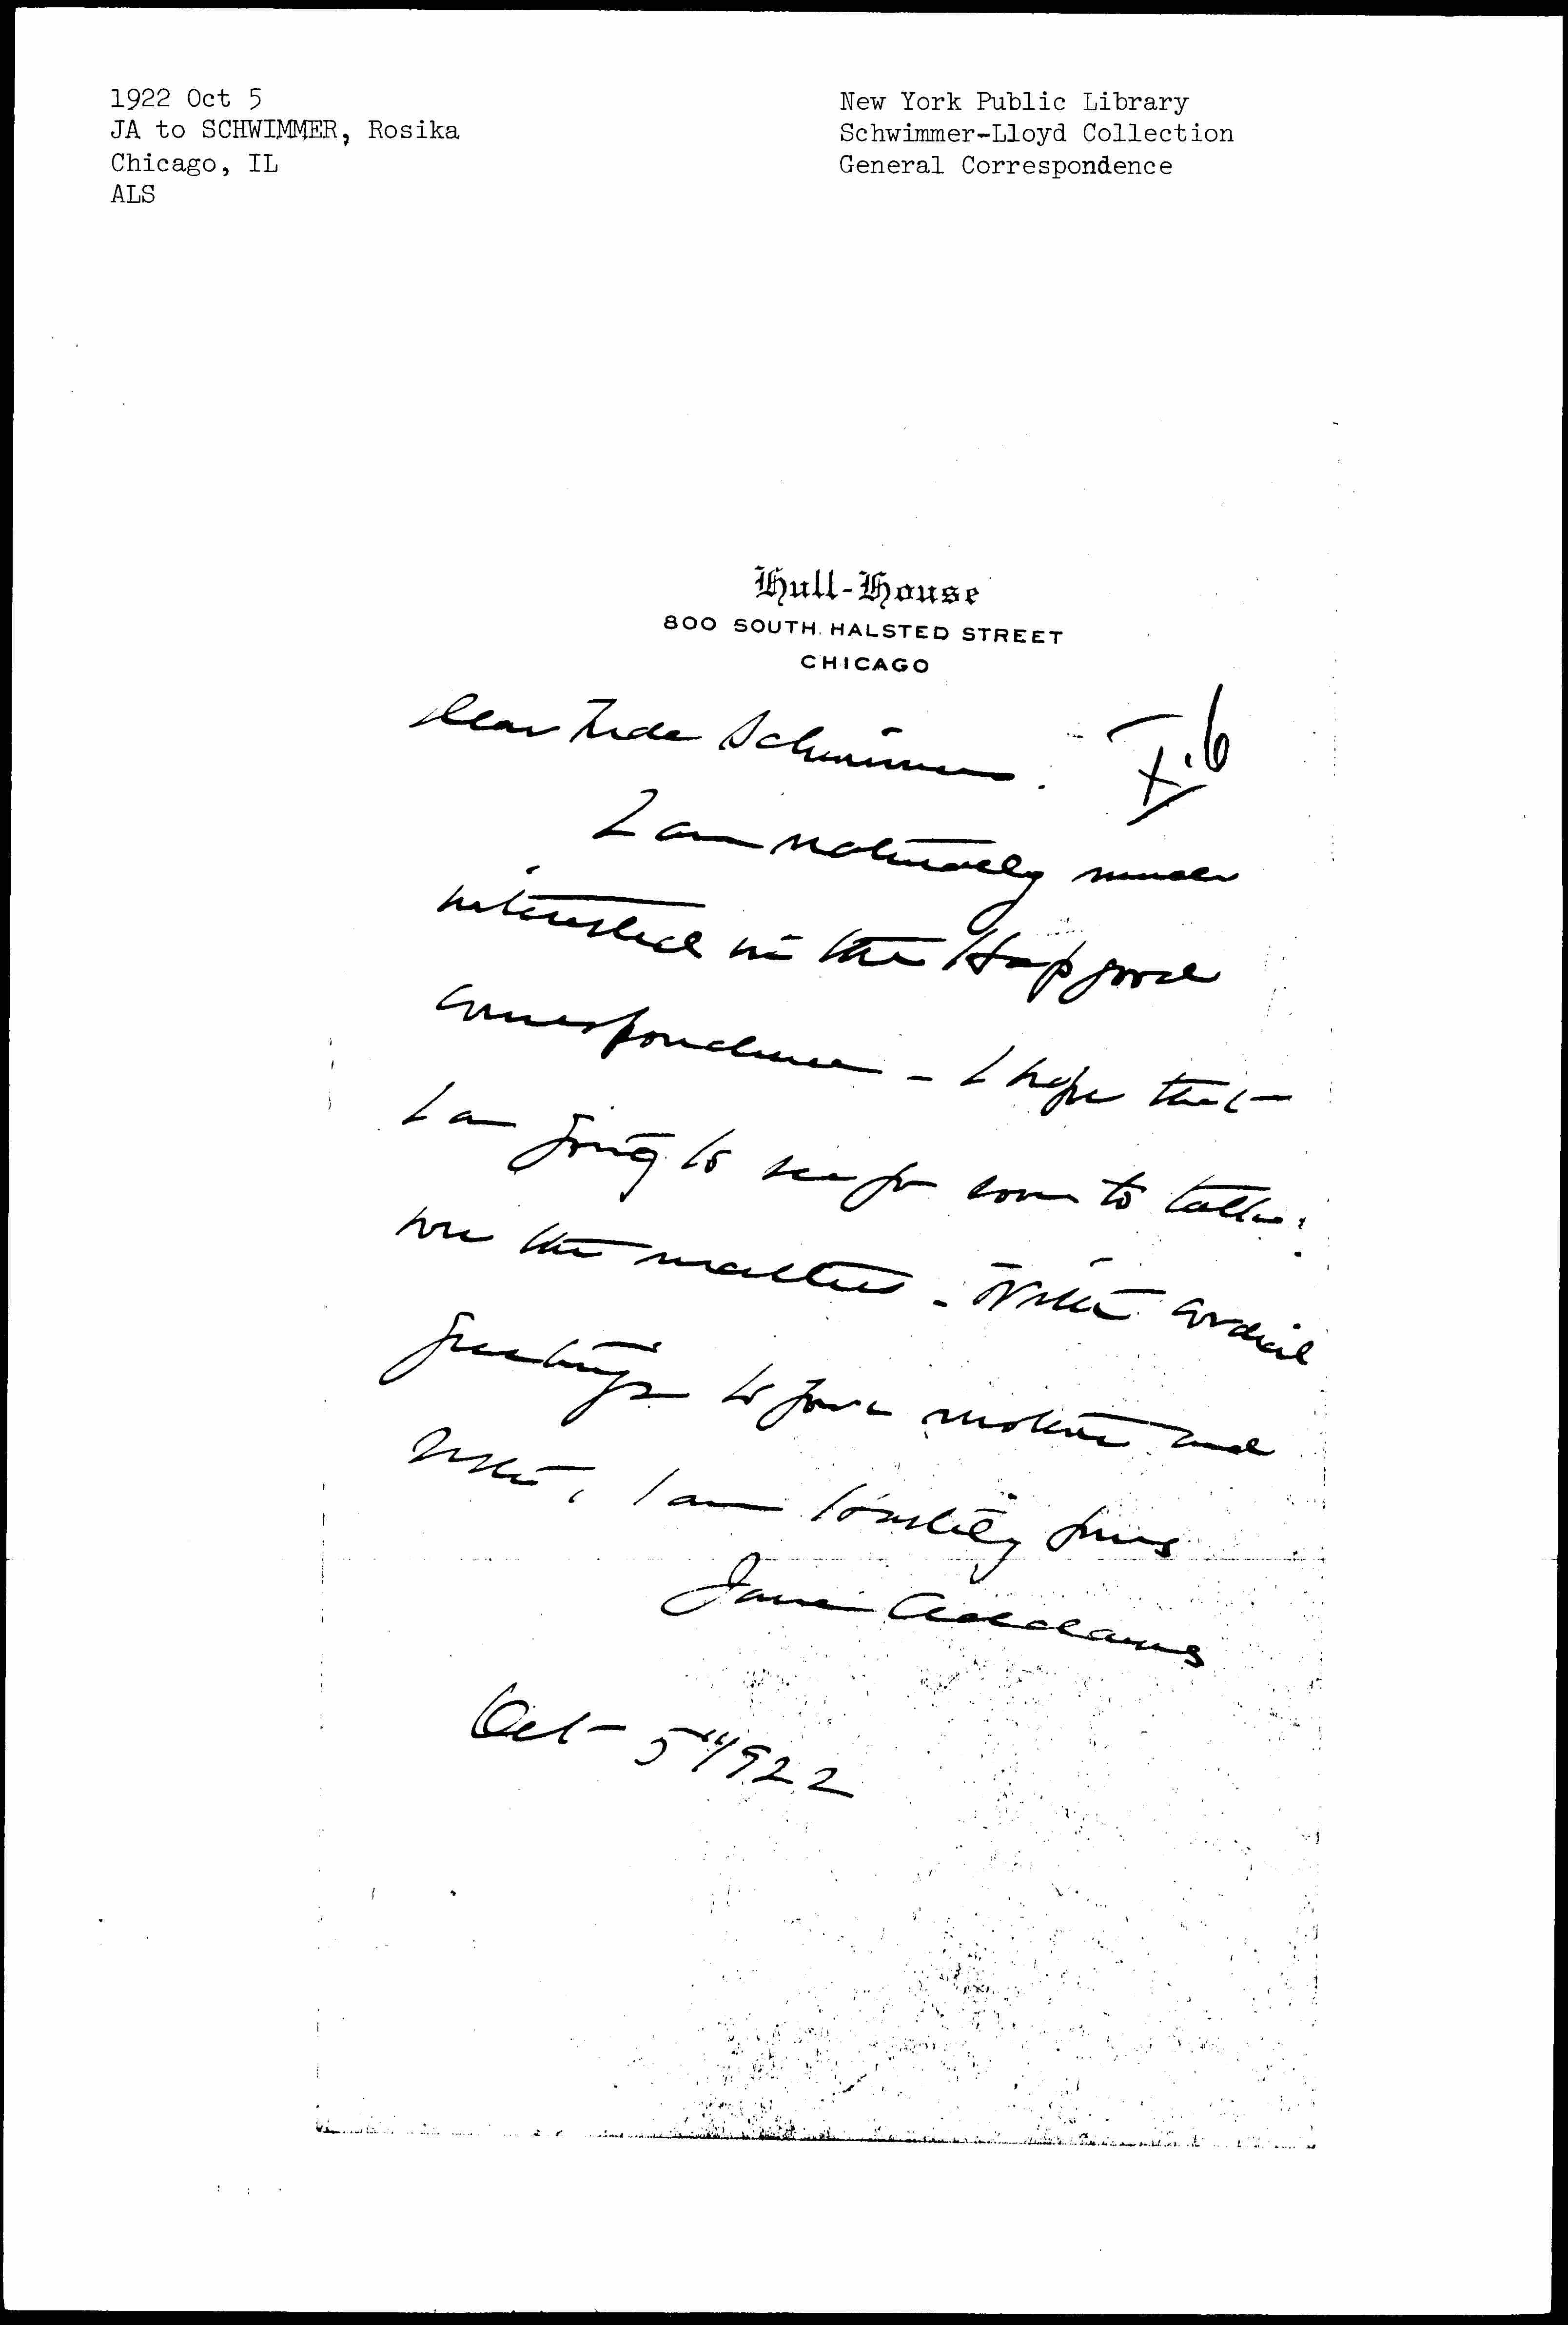 1922 Oct 5
JA to SCHWIMMER, Rosika
Chicago, IL
ALS
New York Public Library
Schwimmer-Lloyd Collection
General Correspondence
Hull-House
800 SOUTH HALSTED STREET
CHICAGO
Dear Mde Schwimmer.
I am naturally much
interested in the Hapgood
correspondence - I hope that
I am going to see you soon to talk
over the matter - With cordial
greetings to your mother and
sister, I am hastily yours
Jane Addams
Oct 5th 1922